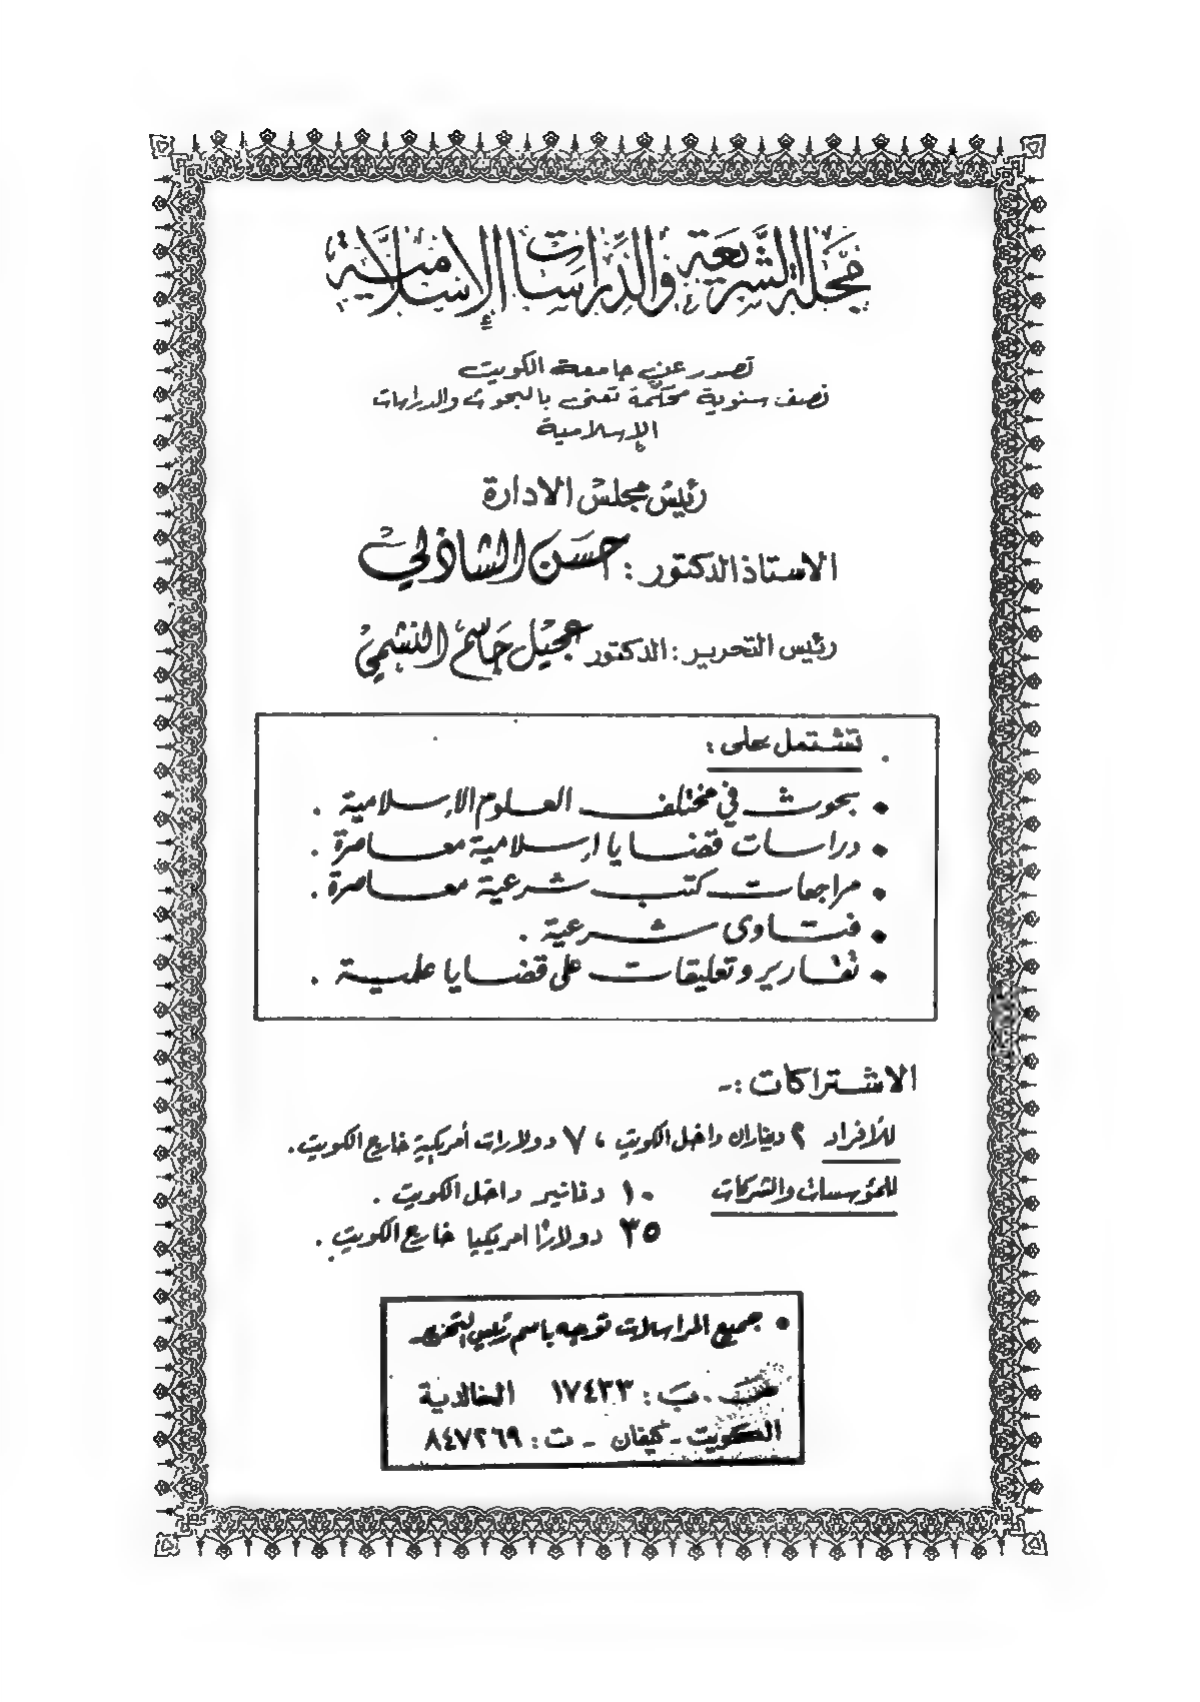 مجلة الشريعة والدراسات الإسلامية
تصدر عن جامعة الكويت
نصف سنوية محكّمة تعنى بالبحوث والدراسات
الإسلامية
رئيس مجلس الادارة
الاستاذ الدكتور : حسن الشاذلي
رئيس التحرير : الدكتور عجيل جاسم النشمي
تشتمل على :
• بحوث في مختلف العلوم الإسلامية .
• دراسات قضايا إسلامية معاصرة .
• مراجعات كتب شرعية معاصرة .
• فتاوى شرعية .
• تقارير وتعليقات على قضايا علمية .
الاشتراكات :-
للأفراد ٢ ديناران داخل الكويت ، ٧ دولارات أمريكية خارج الكويت .
للمؤسسات والشركات ١٠ دنانير داخل الكويت .
٣٥ دولارًا امريكيا خارج الكويت .
• جميع المراسلات توجه باسم رئيس التحرير
ص . ب : ١٧٤٣٣ الخالدية
الكويت - كيفان - ت : ٨٤٧٢٦٩